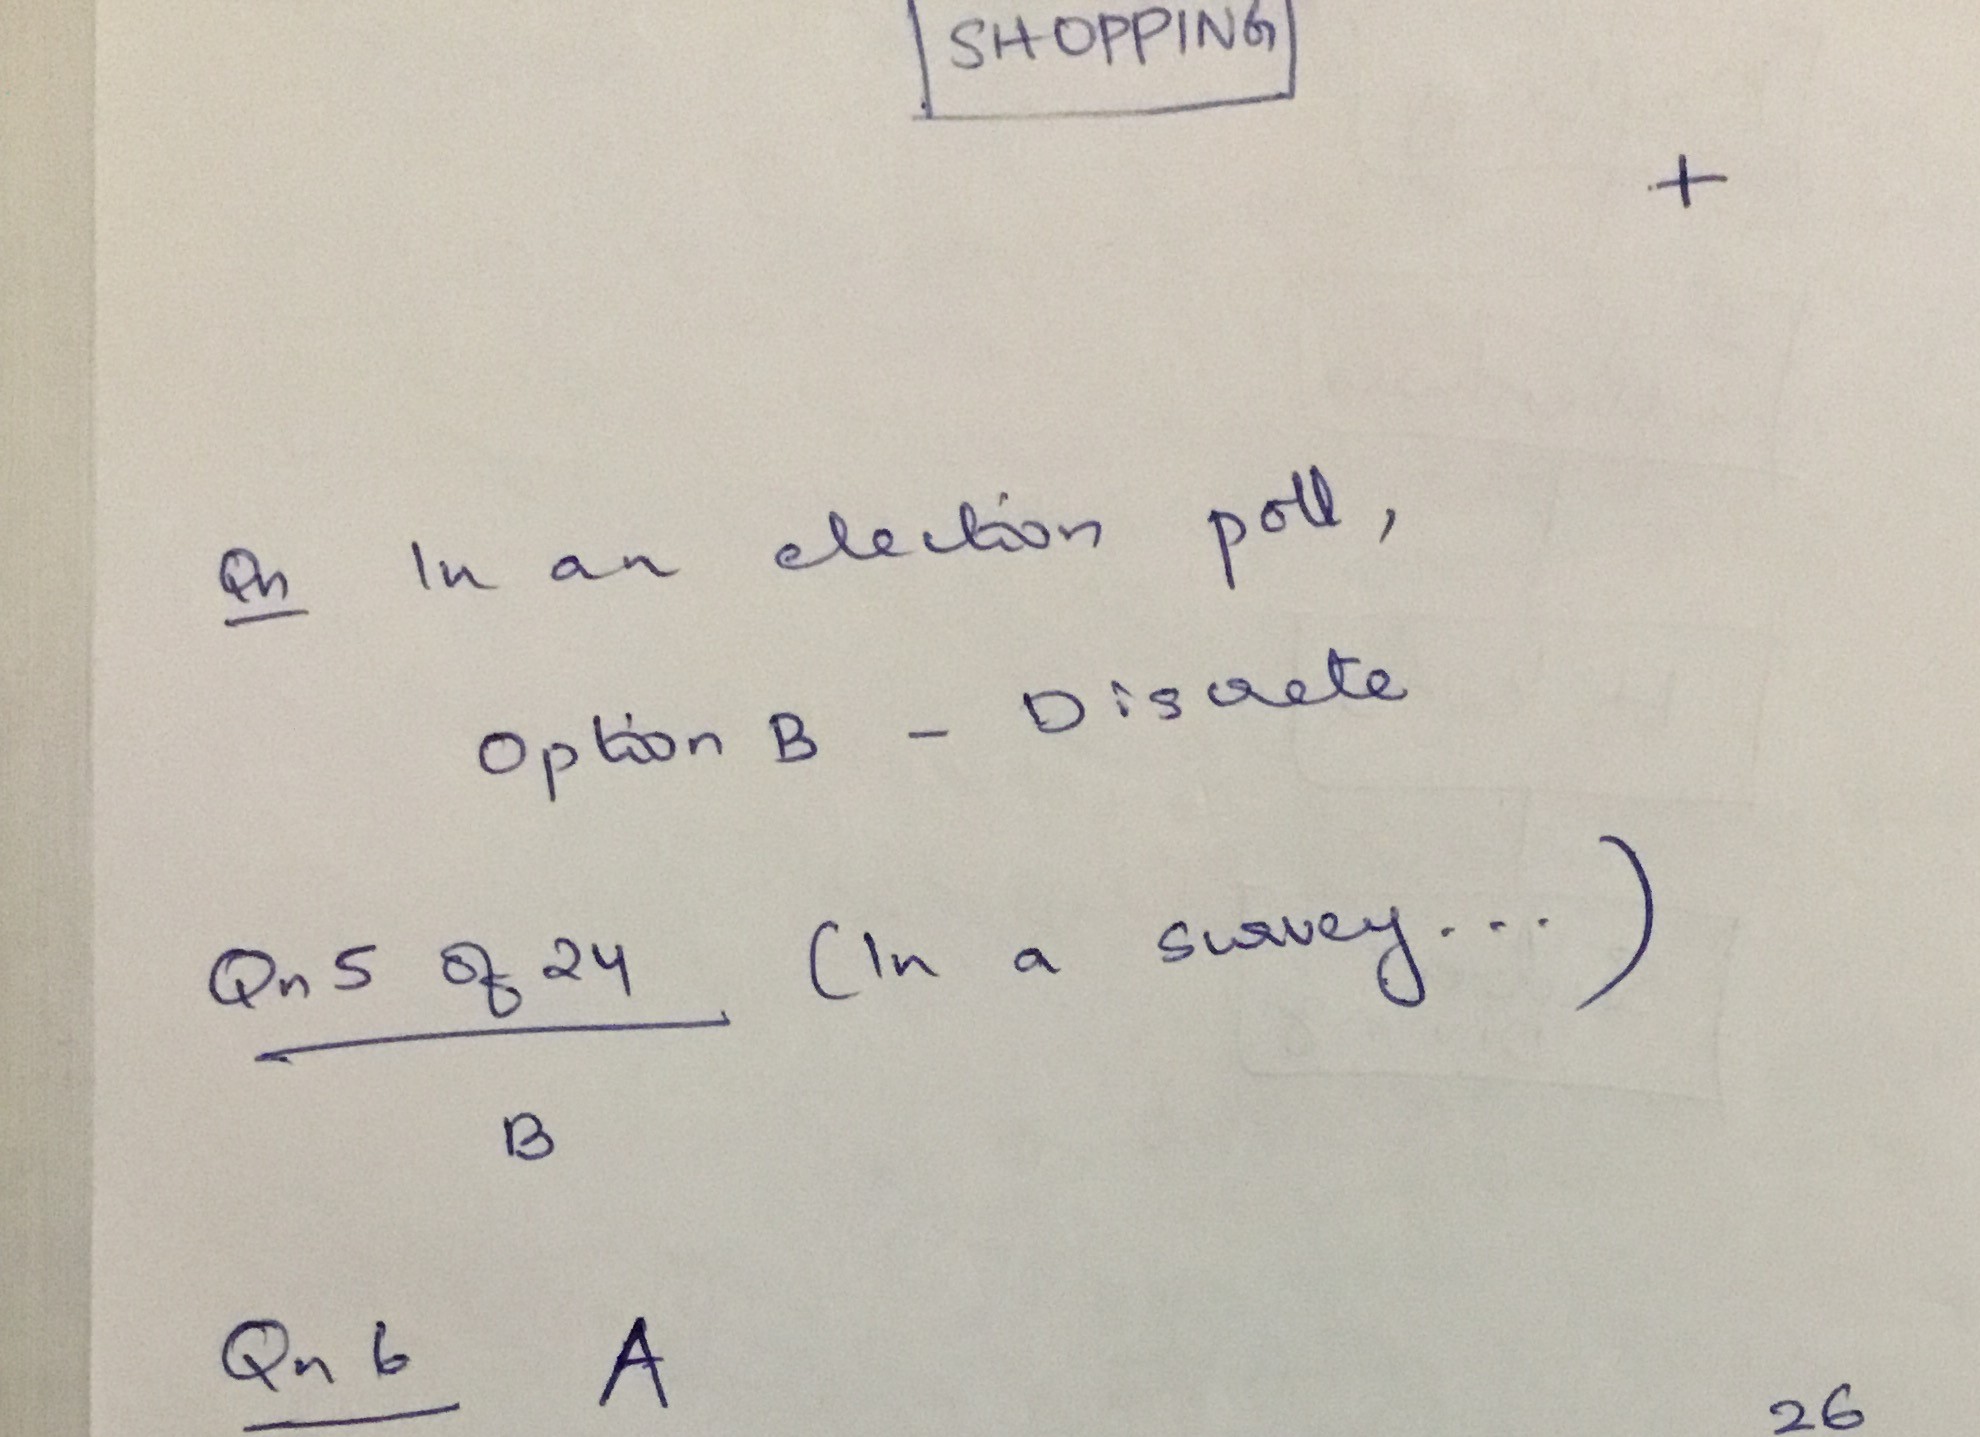 SHOPPING
+
Qn In an election poll,
Option B - Discrete
Qn 5 of 24 (In a survey....)
B
Qn 6 A
26